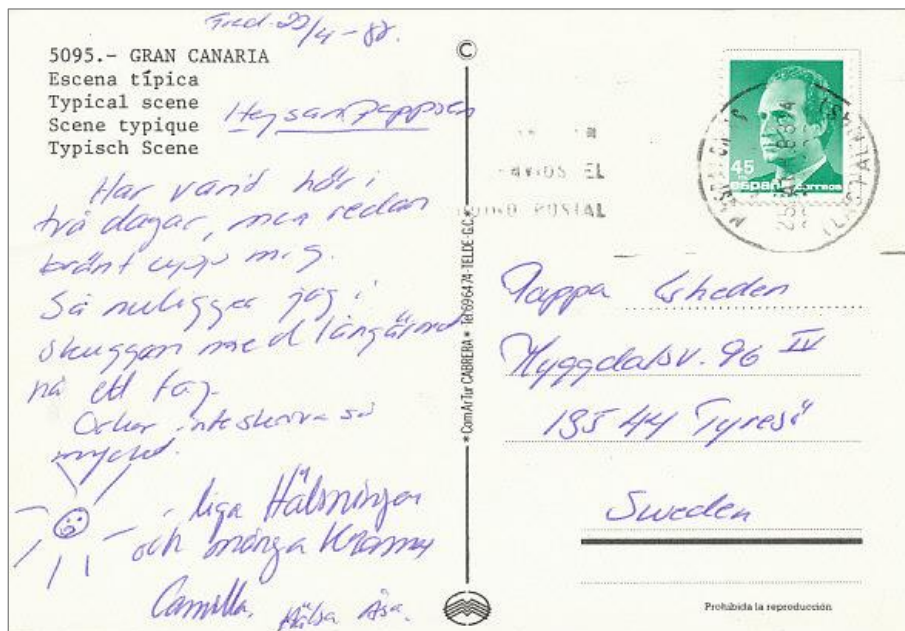 Fred. 22/4-88.
5095.- GRAN CANARIA
Escena típica
Typical scene
Scene typique
Typisch Scene
Hejsan Pappsen
Har varit här i
två dagar, men redan
bränt upp mig.
Så nu ligger jag i
skuggan med långärmat
på ett tag.
Orkar inte skriva så
mycket.
liga Hälsningar
och många Kramar
Camilla. Hälsa Åsa.
©
*ComArTur CABRERA * Tel 696474-TELDE-G.C.*
45
españa CORREOS
ENVIOS EL
POSTAL
Pappa
Myggdalsv. 96 IV
135 44 Tyresö
Sweden
Prohibida la reproducción